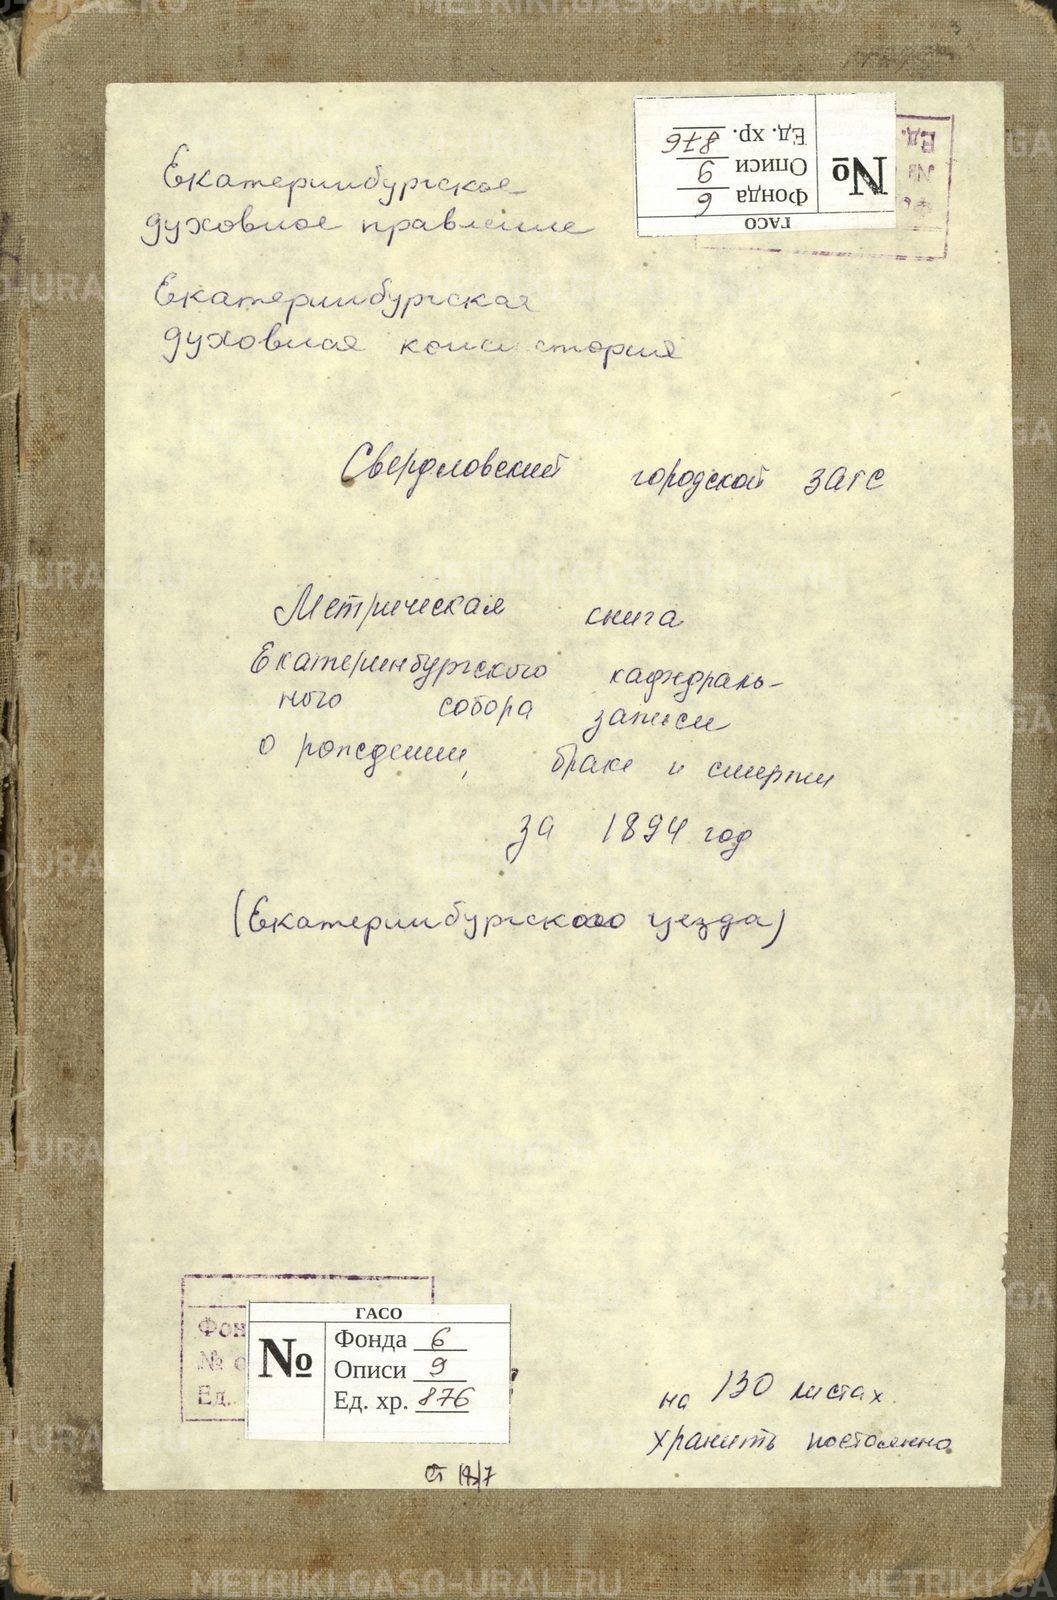 ГАСО
№
Фонда 6
Описи 9
Ед. хр. 876
Ед.
№
Ф.
Екатеринбургское
духовное правление
Екатеринбургская
духовная консистория
Свердловский городской ЗАГС
Метрическая книга
Екатеринбургского кафедраль-
ного собора записи
о рождении, браке и смерти
за 1894 год
(Екатеринбургского уезда)
Фон
№ о
Ед.
ГАСО
№
Фонда 6
Описи 9
Ед. хр. 876
на 130 листах
хранить постоянно
METRIKI.GASO-URAL.RU